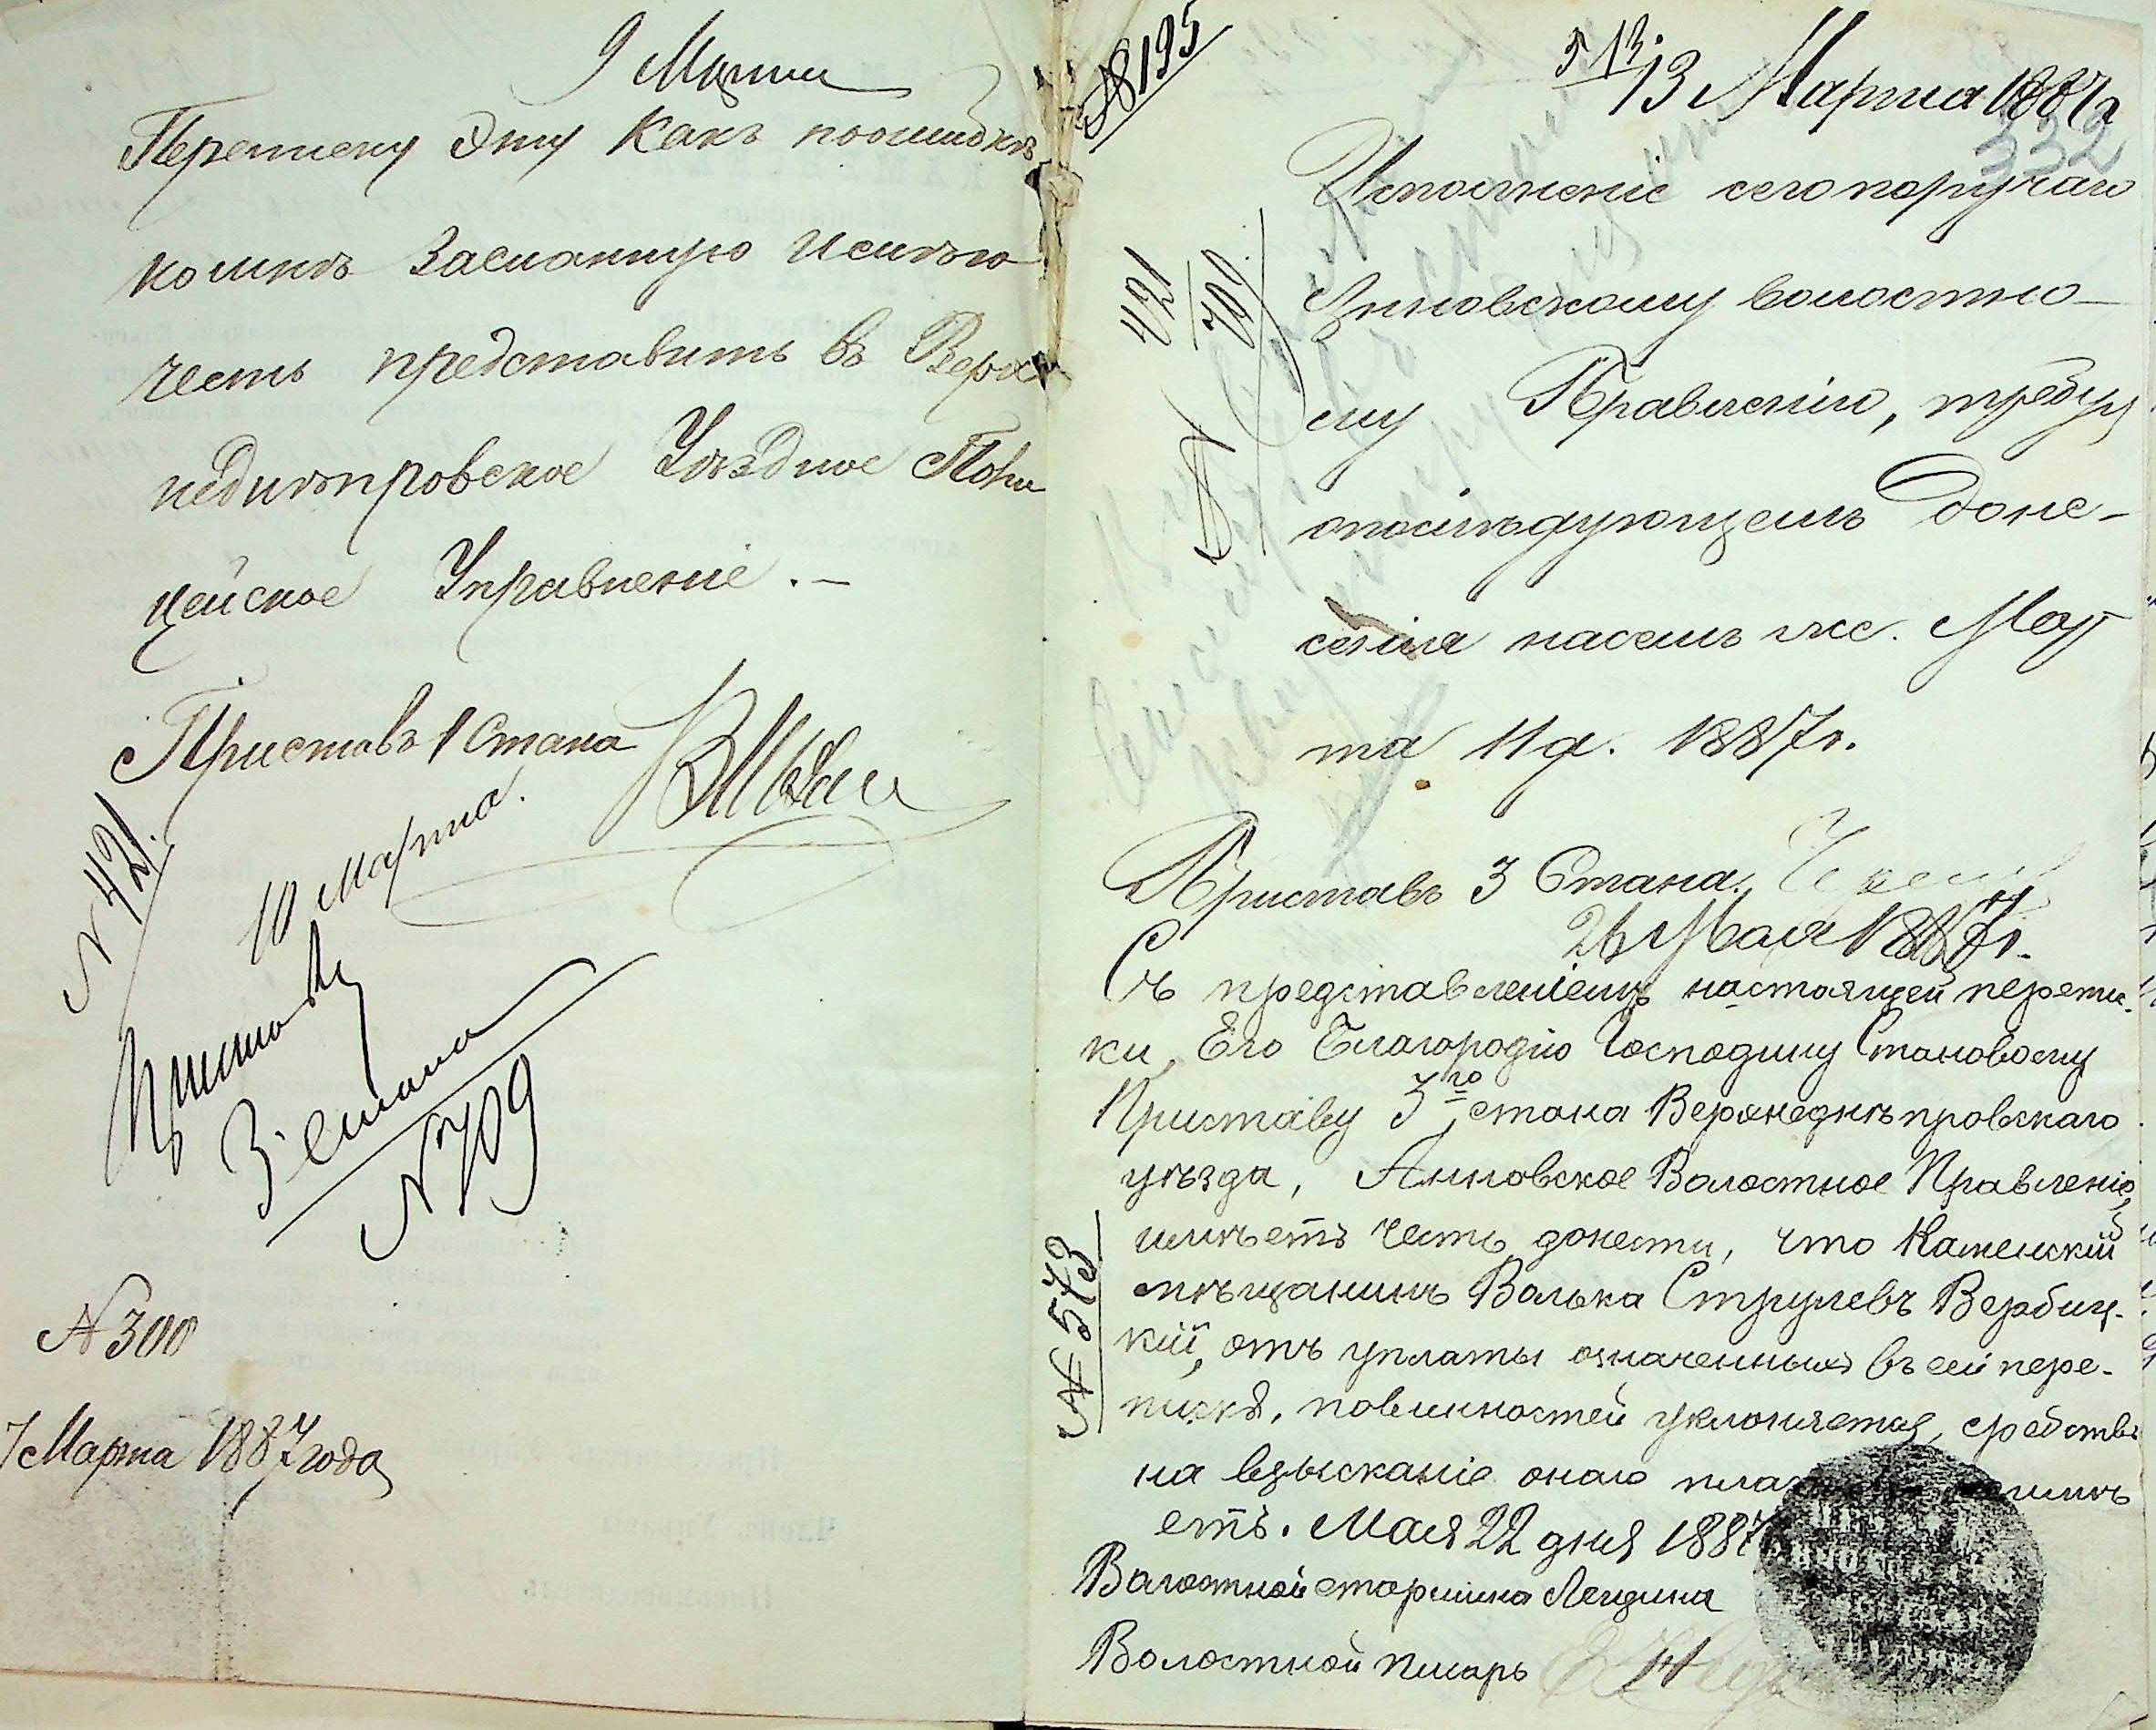 9 Марта
Переписку эту какъ поошибкѣ
комнѣ засланную имѣю
честь представить въ Верх
недиѣпровское Уѣздное Поли
цейское Управленіе. –
Приставъ 1 Стана
№ 421.
10 Марта.
Приставу
3 стана
№ 709
№ 300
7 Марта 1887 года
№ 8195
13 Марта 1887 г
332
Исполненіе сего поручаю
Анновскому волостно-
му Правленію, требуя
опослѣдующемъ доне-
сенія насемъ же. Мар
та 11 д. 1887 г.
421
709
Приставъ 3 Стана
26 Мая 1887 г.
Съ представленіемъ настоящей перепис-
ки, Его Благородію Господину Становому
Приставу 3го стана Верхнеднѣпровскаго
уѣзда, Анновское Волостное Правленіе,
имѣетъ честь донести, что Каменскій
мѣщанинъ Волька Струлевъ Вербиц-
кій, отъ уплаты означенныхъ въ сей пере-
пискѣ, повинностей уклоняется, средствъ
на взысканіе онаго
етъ. Мая 22 дня 1887
Волостной старшина
Волостной писарь
№ 573